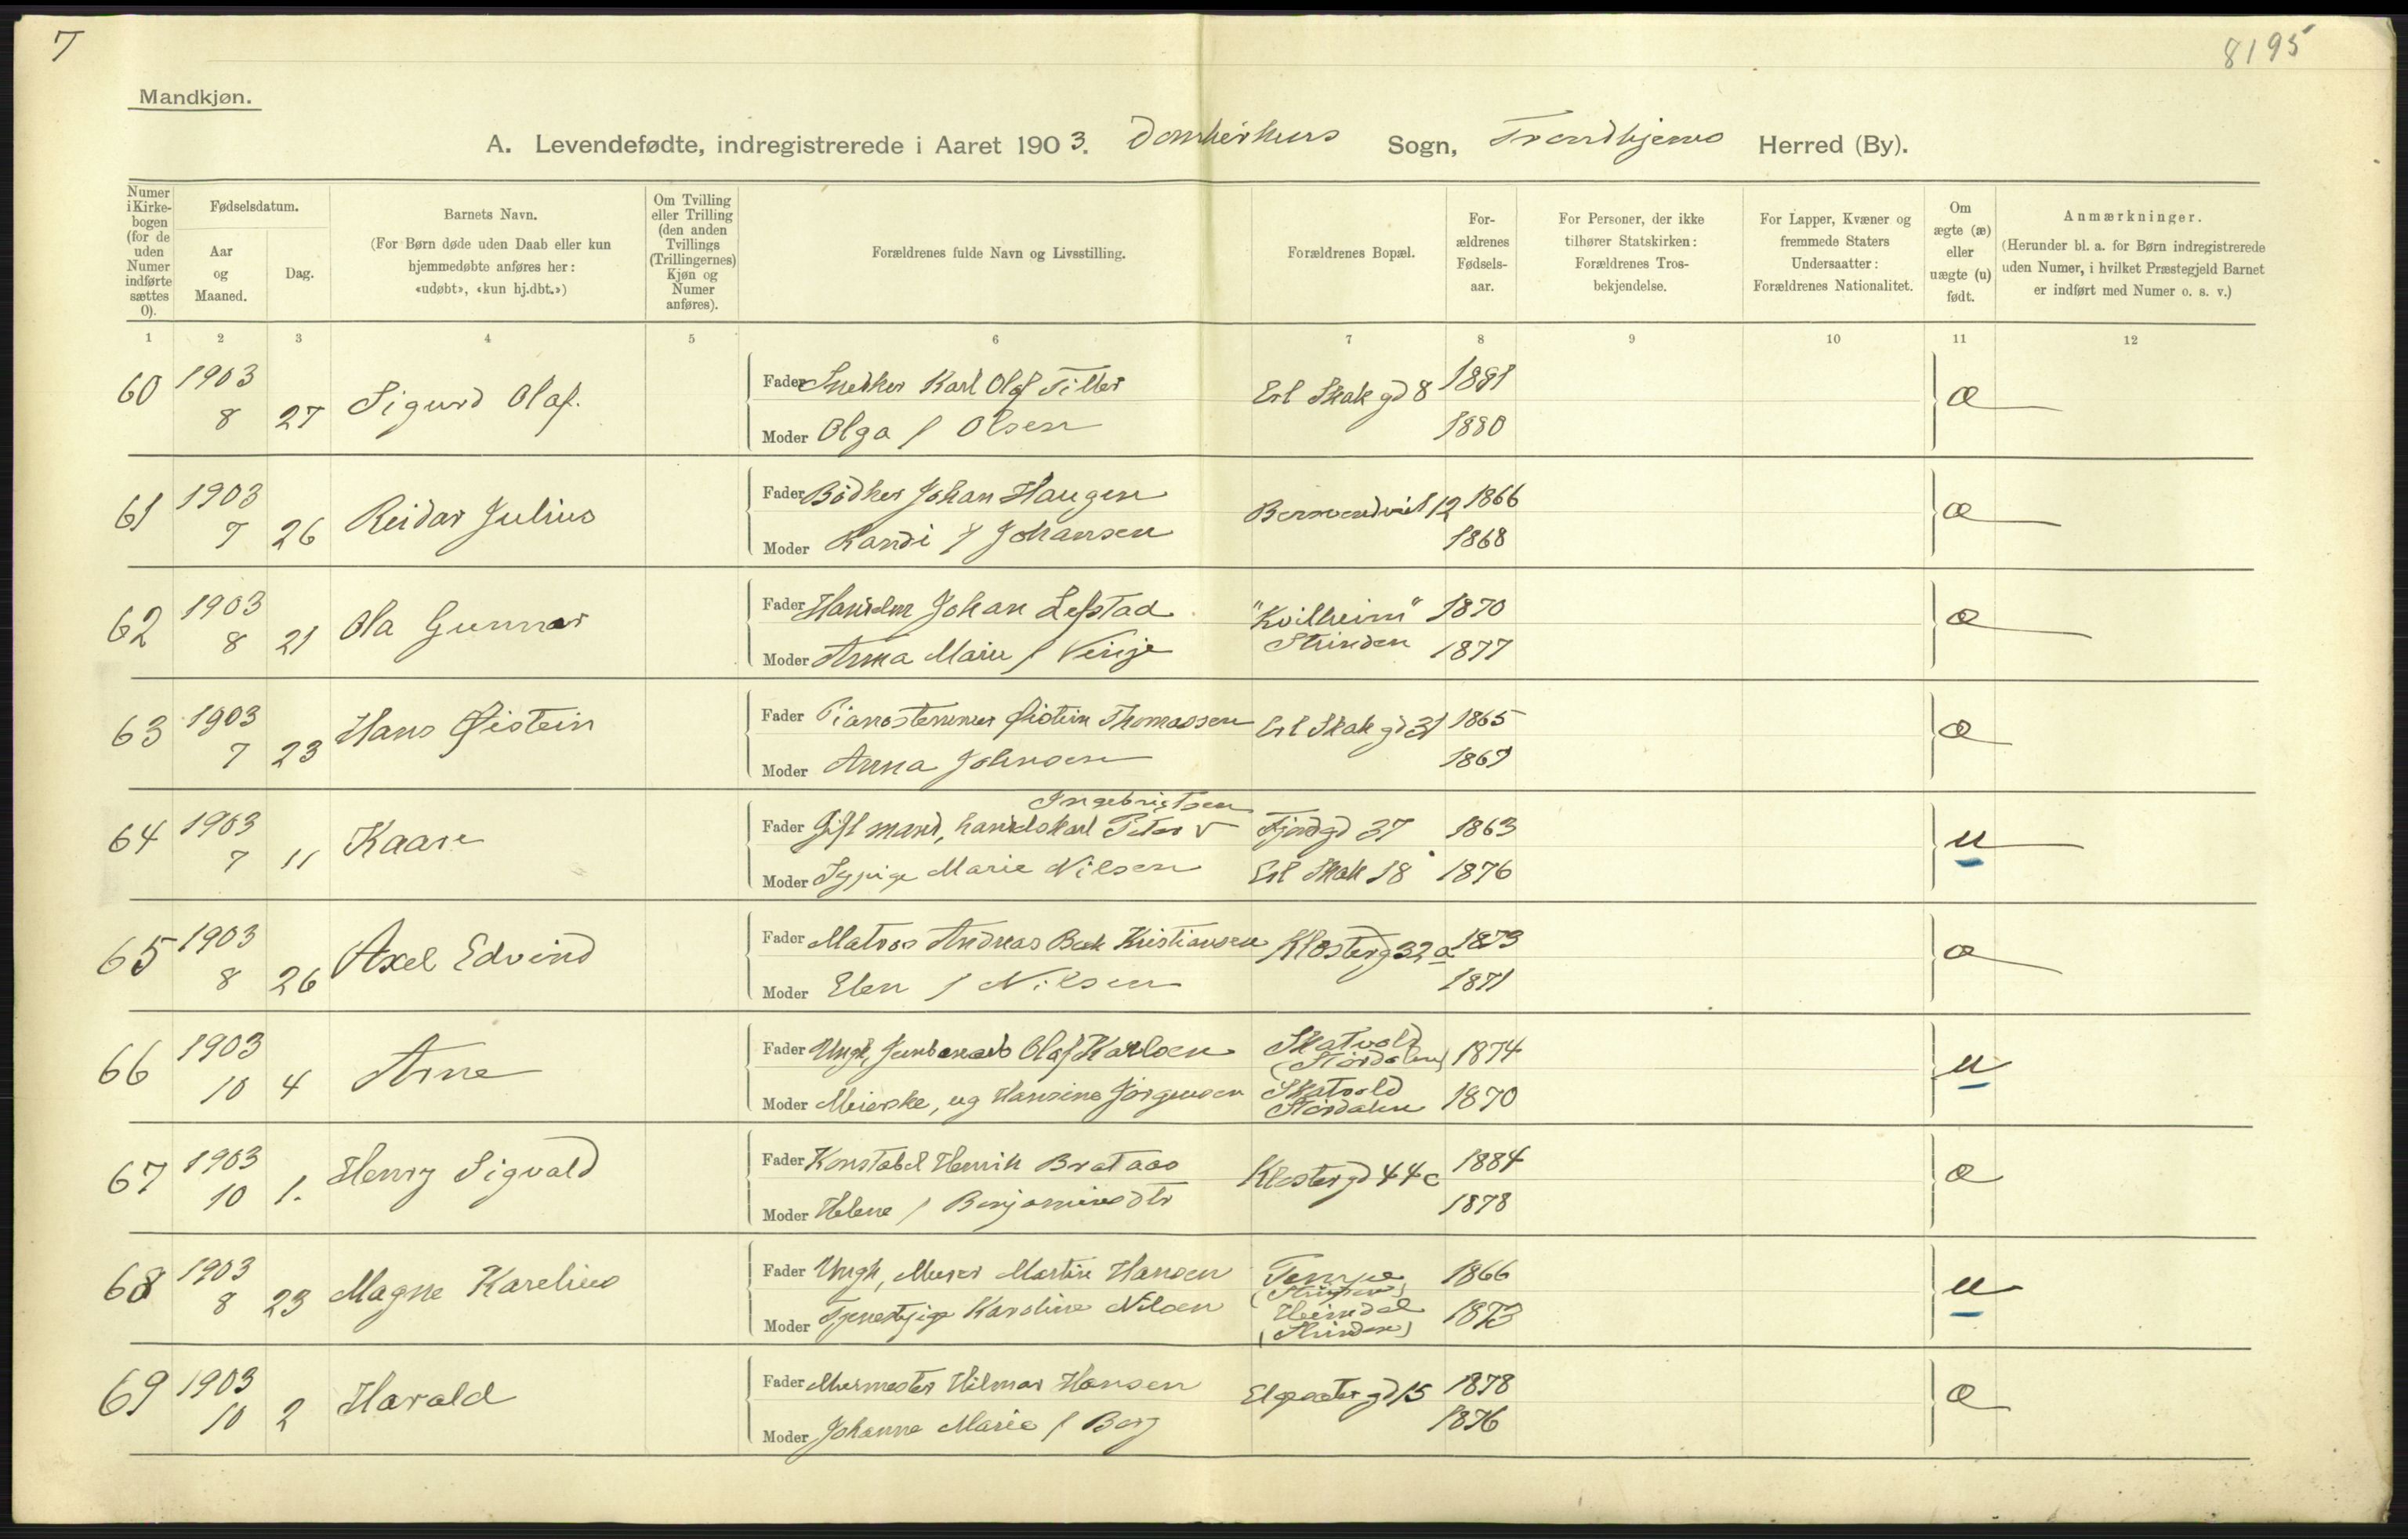 7
8195
Mandkjøn.
A. Levendefødte, indregistrerede i Aaret 1903. Domkirkens Sogn, Trondhjems Herred (By).
Numer i Kirkebogen (for de uden Numer indførte sættes 0).
Fødselsdatum.
Aar og Maaned.
Dag.
Barnets Navn.
(For Børn døde uden Daab eller kun hjemmedøbte anføres her: «udøbt», «kun hj.dbt.»)
Om Tvilling eller Trilling (den anden Tvillings (Trillingernes) Kjøn og Numer anføres).
Forældrenes fulde Navn og Livsstilling.
Forældrenes Bopæl.
Forældrenes Fødselsaar.
For Personer, der ikke tilhører Statskirken: Forældrenes Trosbekjendelse.
For Lapper, Kvæner og fremmede Staters Undersaatter: Forældrenes Nationalitet.
Om ægte (æ) eller uægte (u) født.
Anmærkninger.
(Herunder bl. a. for Børn indregistrerede uden Numer, i hvilket Præstegjeld Barnet er indført med Numer o. s. v.)
1 2 3 4 5 6 7 8 9 10 11 12
60 1903 8 27 Sigurd Olaf.
Fader Snedker Karl Olaf Tiller Erl Skak gd 8 1881 æ
Moder Olga f Olsen 1880
61 1903 7 26 Reidar Julius
Fader Bødker Johan Haugen 12 1866 æ
Moder Randi f Johansen 1868
62 1903 8 21 Ola Gunnar
Fader Handelm Johan Lefstad "Kvilheim" 1870 æ
Moder Anna Marie f Strinden 1877
63 1903 7 23 Hans Øistein
Fader Pianostemmer Øistein Thomassen Erl Skak gd 31 1865 æ
Moder Anna Johnsen 1867
64 1903 7 11 Kaare
Ingebrigtsen
Fader Gift mand, handelskarl Peter v Fjordgd 37 1863 u
Moder Marie Nilsen Erl Skak 18 1876
65 1903 8 26 Axel Edvind
Fader Matros Andreas Beck Kristiansen Klosterg 32 a 1873 æ
Moder Elen f Nilsen 1871
66 1903 10 4 Arne
Fader Ungk, Jernbanearb Olaf Karlsen Skatvold (Stördalen) 1874 u
Moder Meierske, ug Hansine Jörgensen Skatvold Stördalen 1870
67 1903 10 1. Henry Sigvald
Fader Konstabel Henrik Brataas Klostergd 44 c 1884 æ
Moder Helene f Benjaminsdtr 1878
68 1903 8 23 Magne Karelius
Fader Ungk, Murer Martin Hansen Tempe (Strinden) 1866 u
Moder Tjenestpige Karoline Nilsen Heimdal (Strinden) 1873
69 1903 10 2 Harald
Fader Murmester Hilmar Hansen Elgesetergd 15 1878 æ
Moder Johanna Marie f Berg 1876